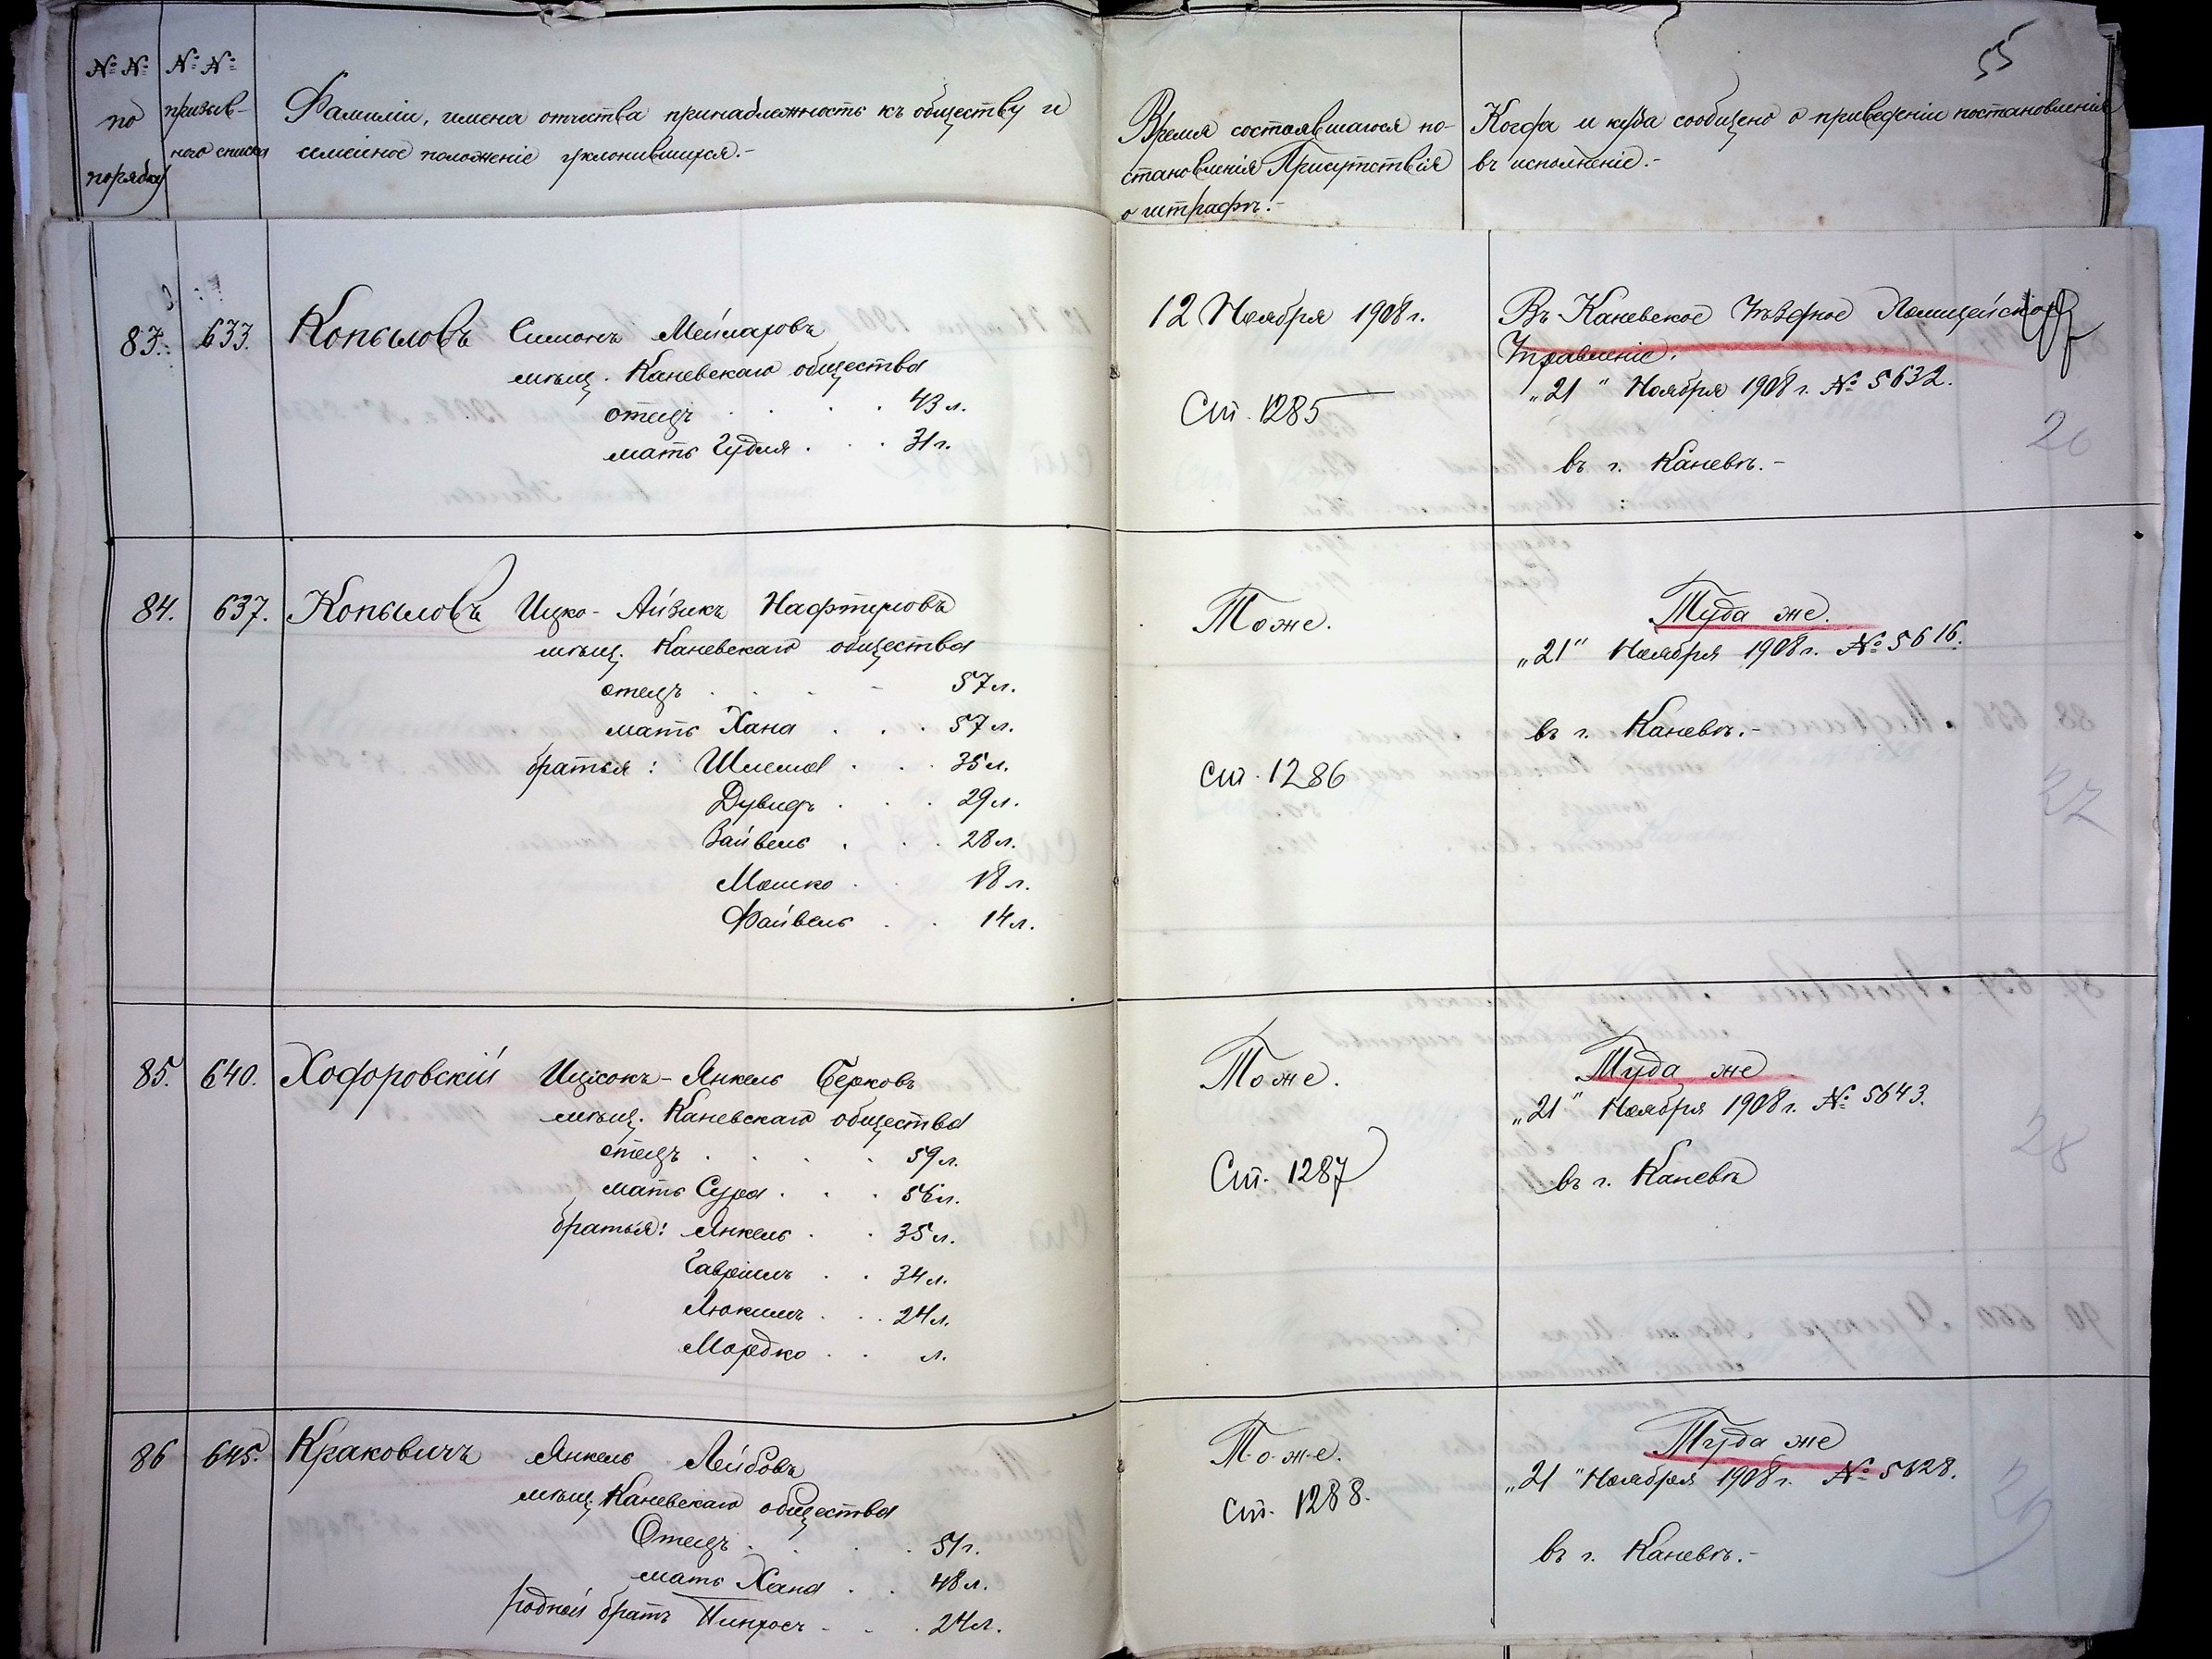 55
№№ по порядку
№№ призыв-
наго списка
Фамиліи, имена отчества принадлежность къ обществу и
семейное положеніе уклонившихся.-
Время состоявшагося по-
становленія Присутствія
о штрафѣ.-
Когда и куда сообщено о приведеніи постановленія
въ исполненіе.-
83. 633. Копыловъ Симонъ
мѣщ. Каневскаго общества
отецъ . . . . 43 л.
мать Гудля . . . 31 г.
12 Ноября 1908 г.
Ст. 1285
Въ Каневское Уѣздное Полицейское
Управленіе.
„21“ Ноября 1908 г. № 5632.
въ г. Каневѣ.-
20
84. 637. Копыловъ Ицко-Айзикъ Нафтуловъ
мѣщ. Каневскаго общества
отецъ . . . - 57 л.
мать Хана . . . 57 л.
братья: Шлема . . . 35 л.
Дувидъ . . . 29 л.
Зайвель . . . 28 л.
Мошко . . 18 л.
Файвель . . 14 л.
Тоже.
Ст. 1286
Туда же.
„21“ Ноября 1908 г. № 5616.
въ г. Каневѣ.-
27
85. 640. Ходоровскій Ицхокъ-Янкель Берковъ
мѣщ. Каневскаго общества
отецъ . . . . 59 л.
мать Сура . . . 56 л.
братья: Янкель . . 35 л.
Гавріилъ . . 34 л.
24 л.
Мордко . . л.
Тоже.
Ст. 1287
Туда же
„21“ Ноября 1908 г. № 5643.
въ г. Каневѣ
28
86 645. Краковичъ Янкель Лейбовъ
мѣщ. Каневскаго общества
Отецъ . . . . 51 г.
мать Хана . . 48 л.
родной братъ Пинхосъ - . . 24 л.
Тоже.
Ст. 1288.
Туда же
„21“ Ноября 1908 г. № 5628.
въ г. Каневѣ.-
29